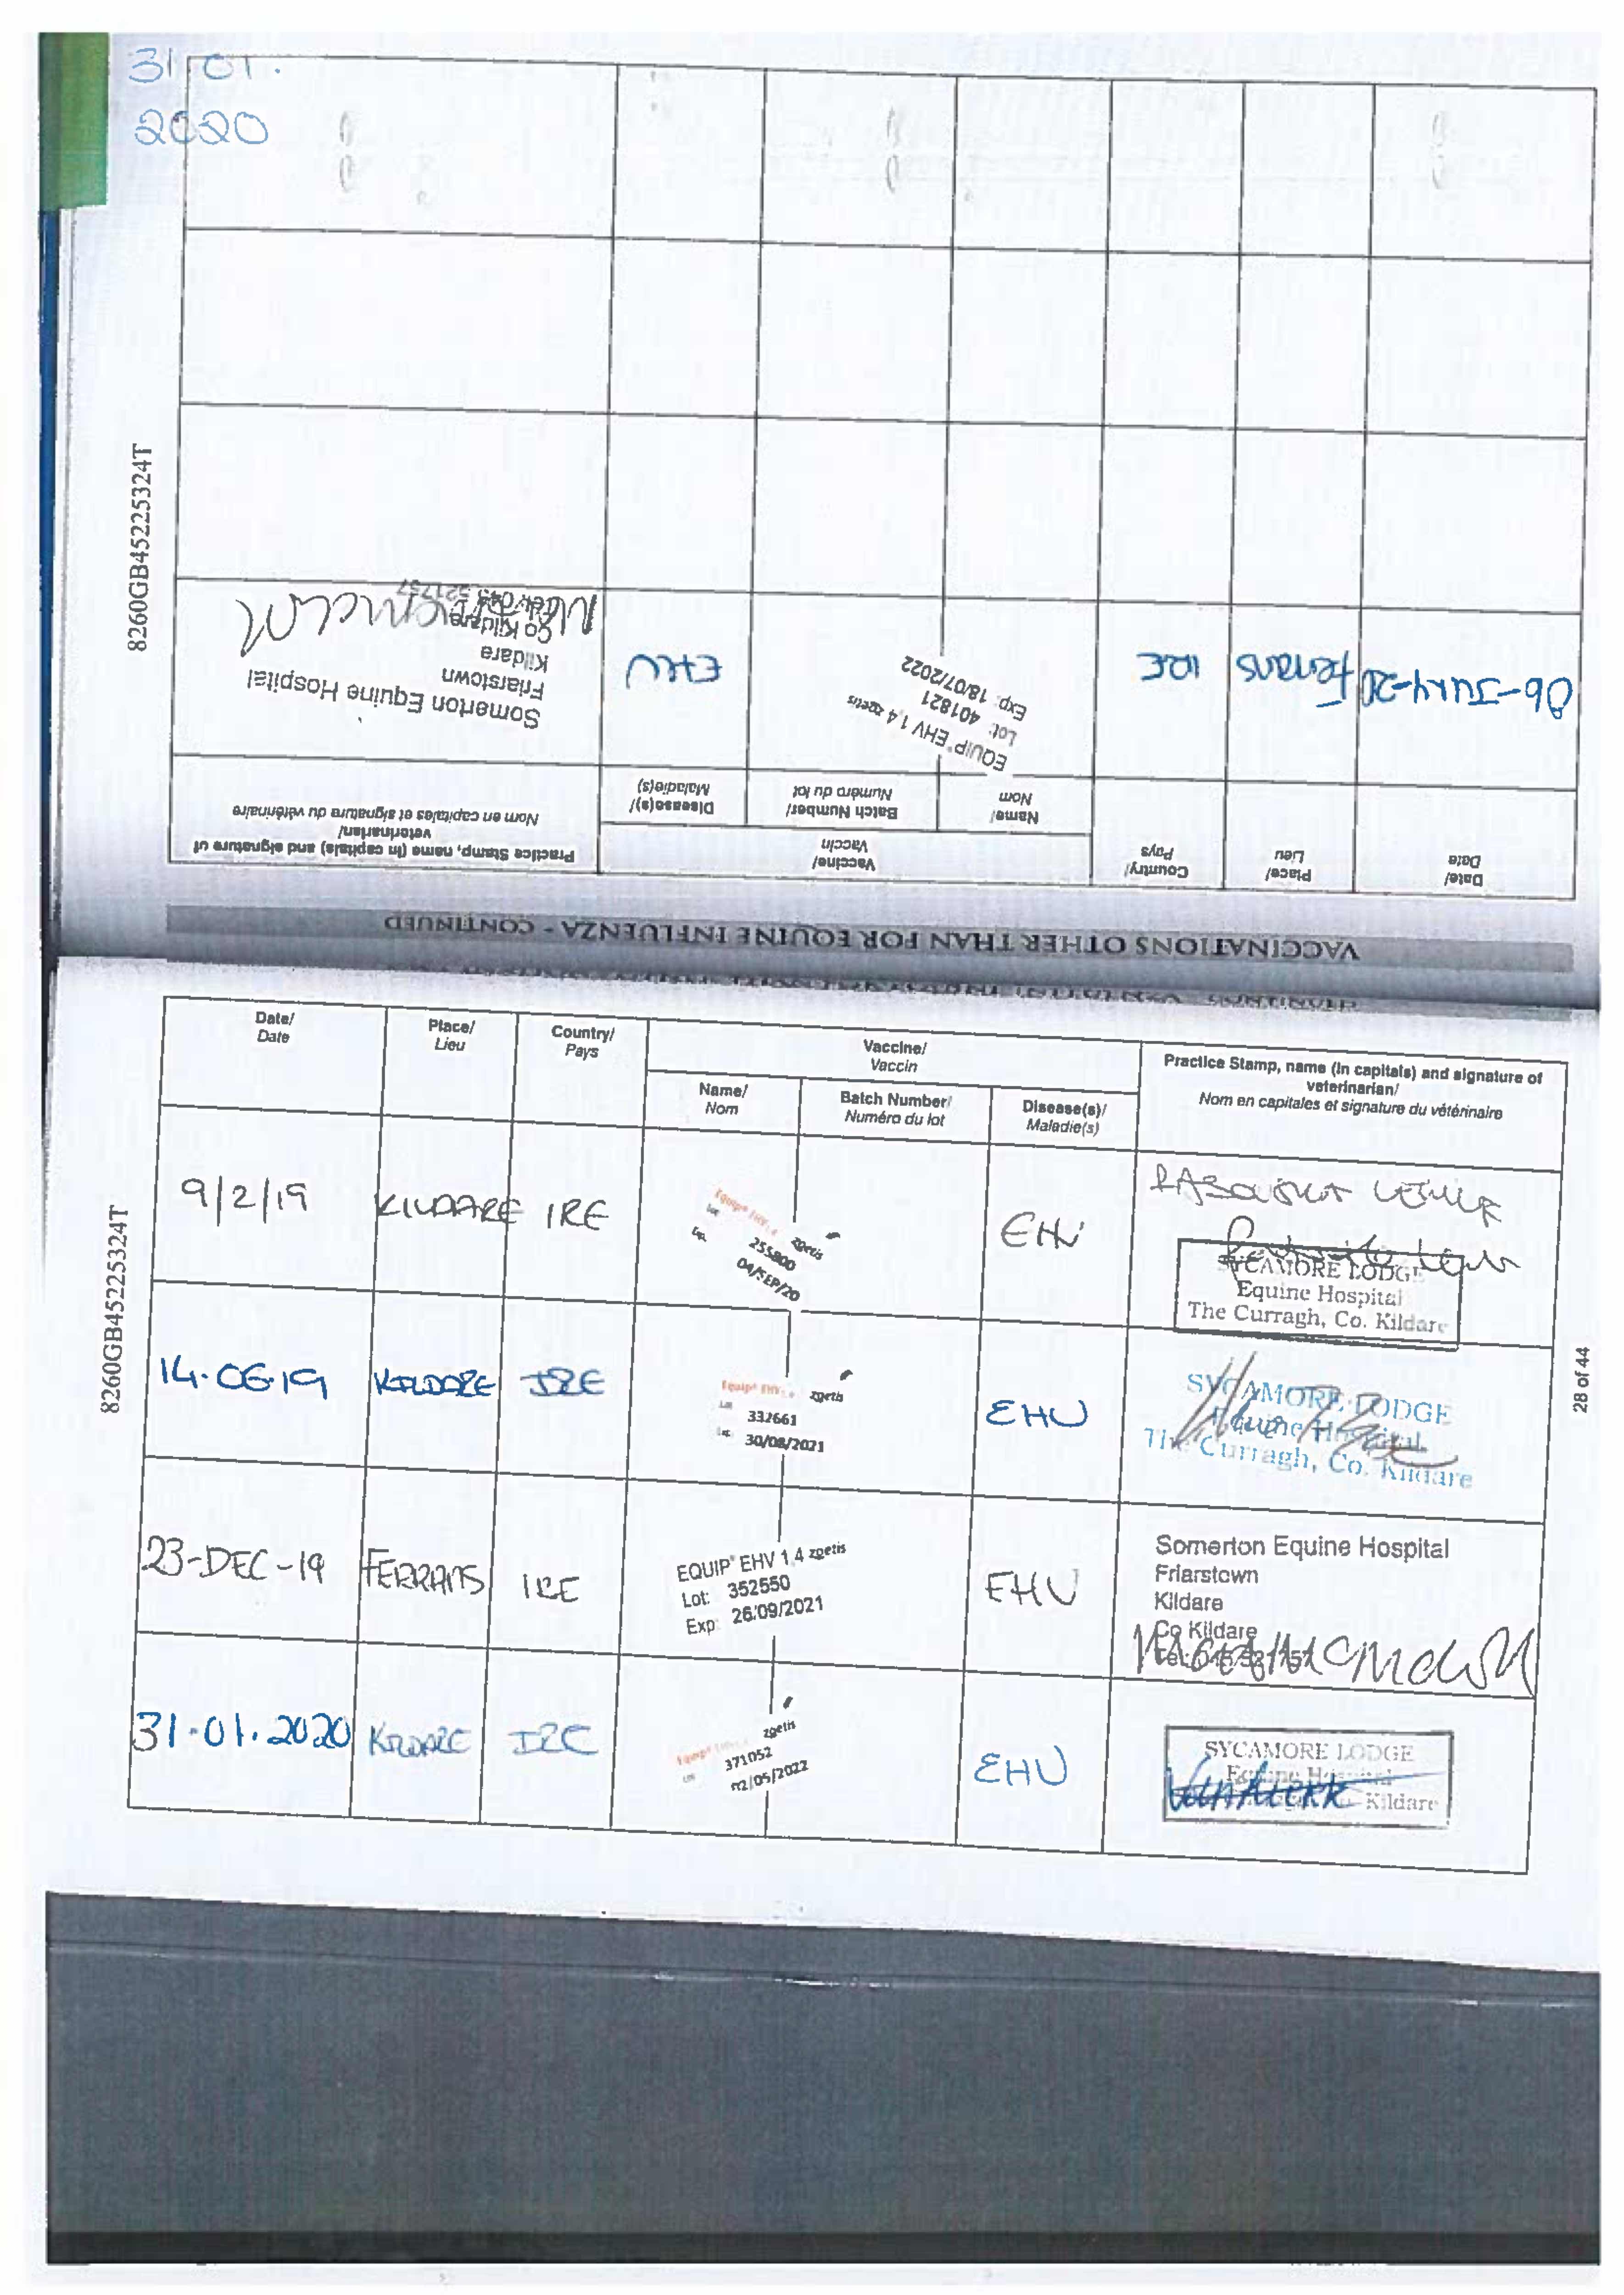 31.01.
2020
8260GB45225324T
VACCINATIONS OTHER THAN FOR EQUINE INFLUENZA - CONTINUED
Date/
Date
Place/
Lieu
Country/
Pays
Vaccine/
Vaccin
Name/
Nom
Batch Number/
Numéro du lot
Disease(s)/
Maladie(s)
Practice Stamp, name (in capitals) and signature of
veterinarian/
Nom en capitales et signature du vétérinaire
06-JULY-20 Ferrans IRE
EQUIP® EHV 1,4 zoetis
Lot: 401821
Exp: 18/07/2022
EHV
Somerton Equine Hospital
Friarstown
Kildare
Co Kildare
8260GB45225324T
Date/
Date
Place/
Lieu
Country/
Pays
Vaccine/
Vaccin
Name/
Nom
Batch Number/
Numéro du lot
Disease(s)/
Maladie(s)
Practice Stamp, name (in capitals) and signature of
veterinarian/
Nom en capitales et signature du vétérinaire
9/2/19 KILDARE IRE
Equip® EHV 1,4 zoetis
Lot 255800
Exp. 04/SEP/20
EHV
SYCAMORE LODGE
Equine Hospital
The Curragh, Co. Kildare
14.06.19 KILDARE IRE
Equip® EHV 1,4 zoetis
Lot 332661
Exp. 30/08/2021
EHV
SYCAMORE LODGE
Equine Hospital
The Curragh, Co. Kildare
23-DEC-19 FERRANS IRE
EQUIP® EHV 1,4 zoetis
Lot: 352550
Exp: 26/09/2021
EHV
Somerton Equine Hospital
Friarstown
Kildare
Co Kildare
31.01.2020 KILDARE IRE
Equip® zoetis
Lot 371052
02/05/2022
EHV
SYCAMORE LODGE
Equine Hospital
Kildare
28 of 44